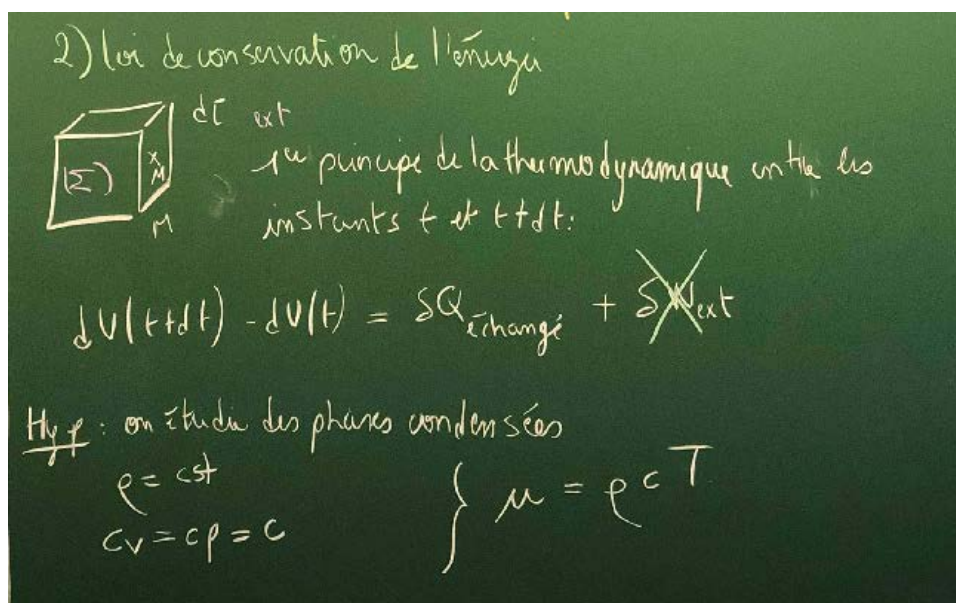 2) loi de conservation de l'énergie
dτ ext
(Σ)
M
M
1er principe de la thermodynamique entre les
instants t et t+dt:
dU(t+dt) - dU(t) = δQéchangé + δWext
Hyp : on étudie des phases condensées
ρ = cst
cv = cp = c
} u = ρcT